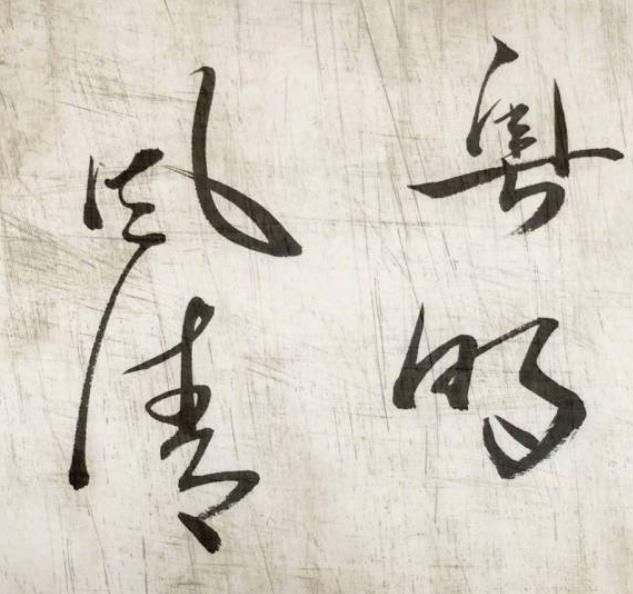 粤明
风清